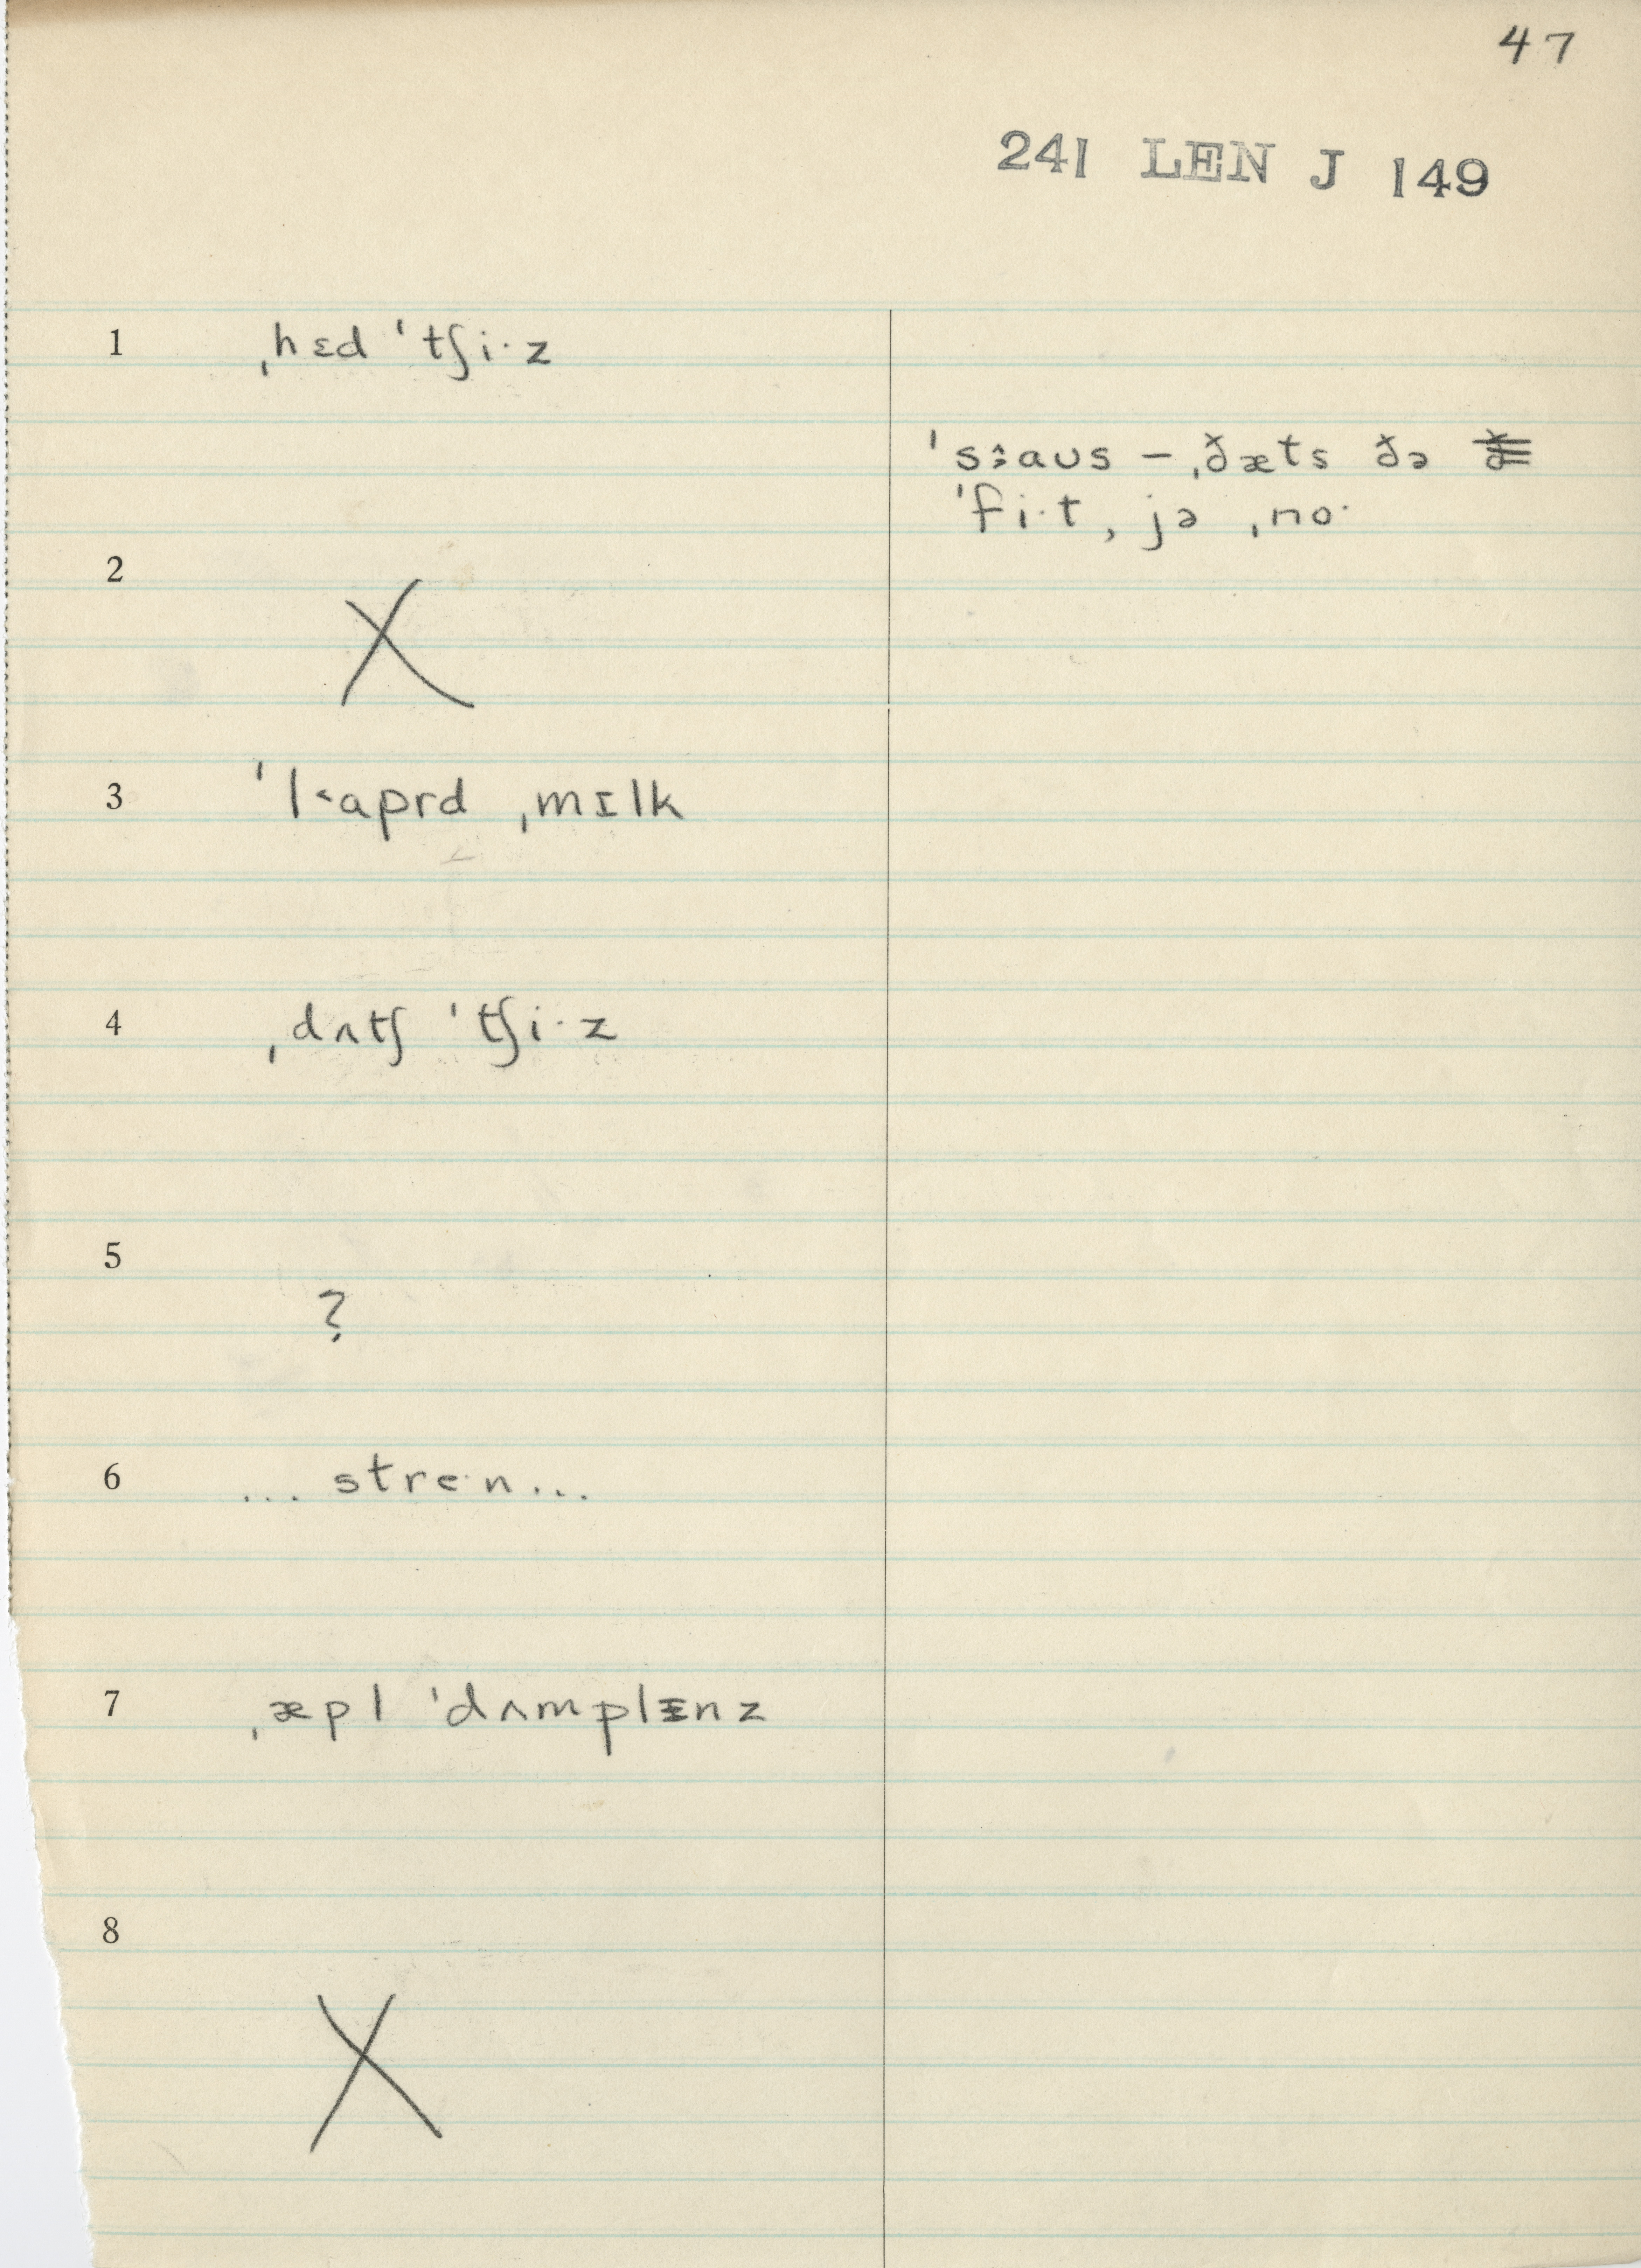 47
241 LEN J 149
1 ˌhɛd ˈtʃi·z
ˈsːaʊs – ˌðæts ðə
ˈfi·t, jə ˌno·
2 X
3 ˈl˂aprd ˌmɪlk
4 ˌdʌtʃ ˈtʃi·z
5 ?
6 ... stre·n...
7 ˌæpl ˈdʌmplɪnz
8 X